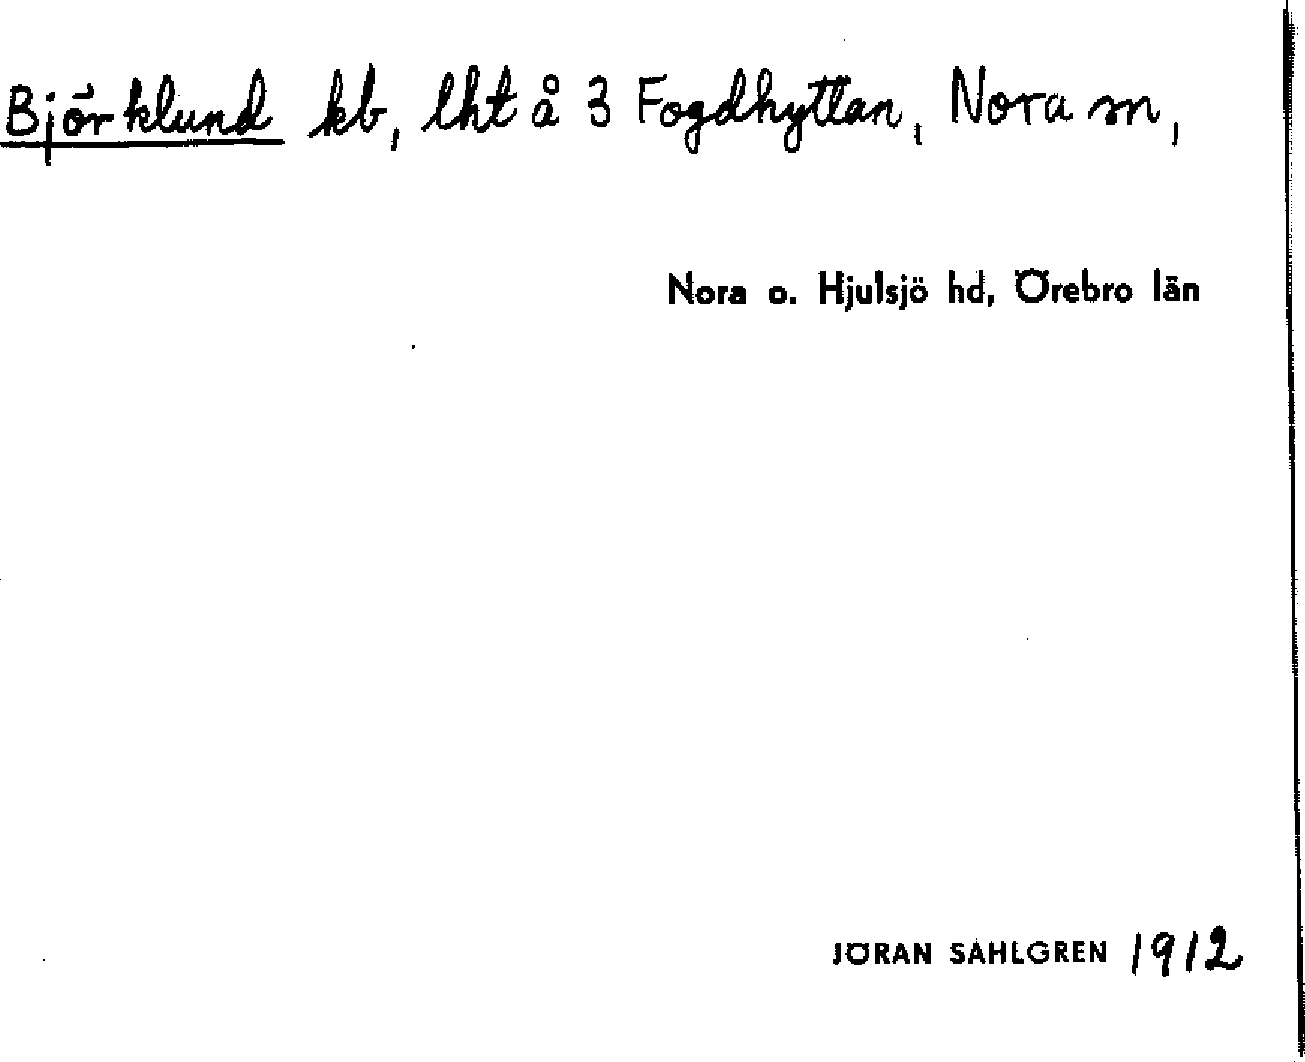 Björklund kb, lht å 3 Fogdhyttan, Nora sn,
Nora o. Hjulsjö hd, Örebro län
JÖRAN SAHLGREN 1912